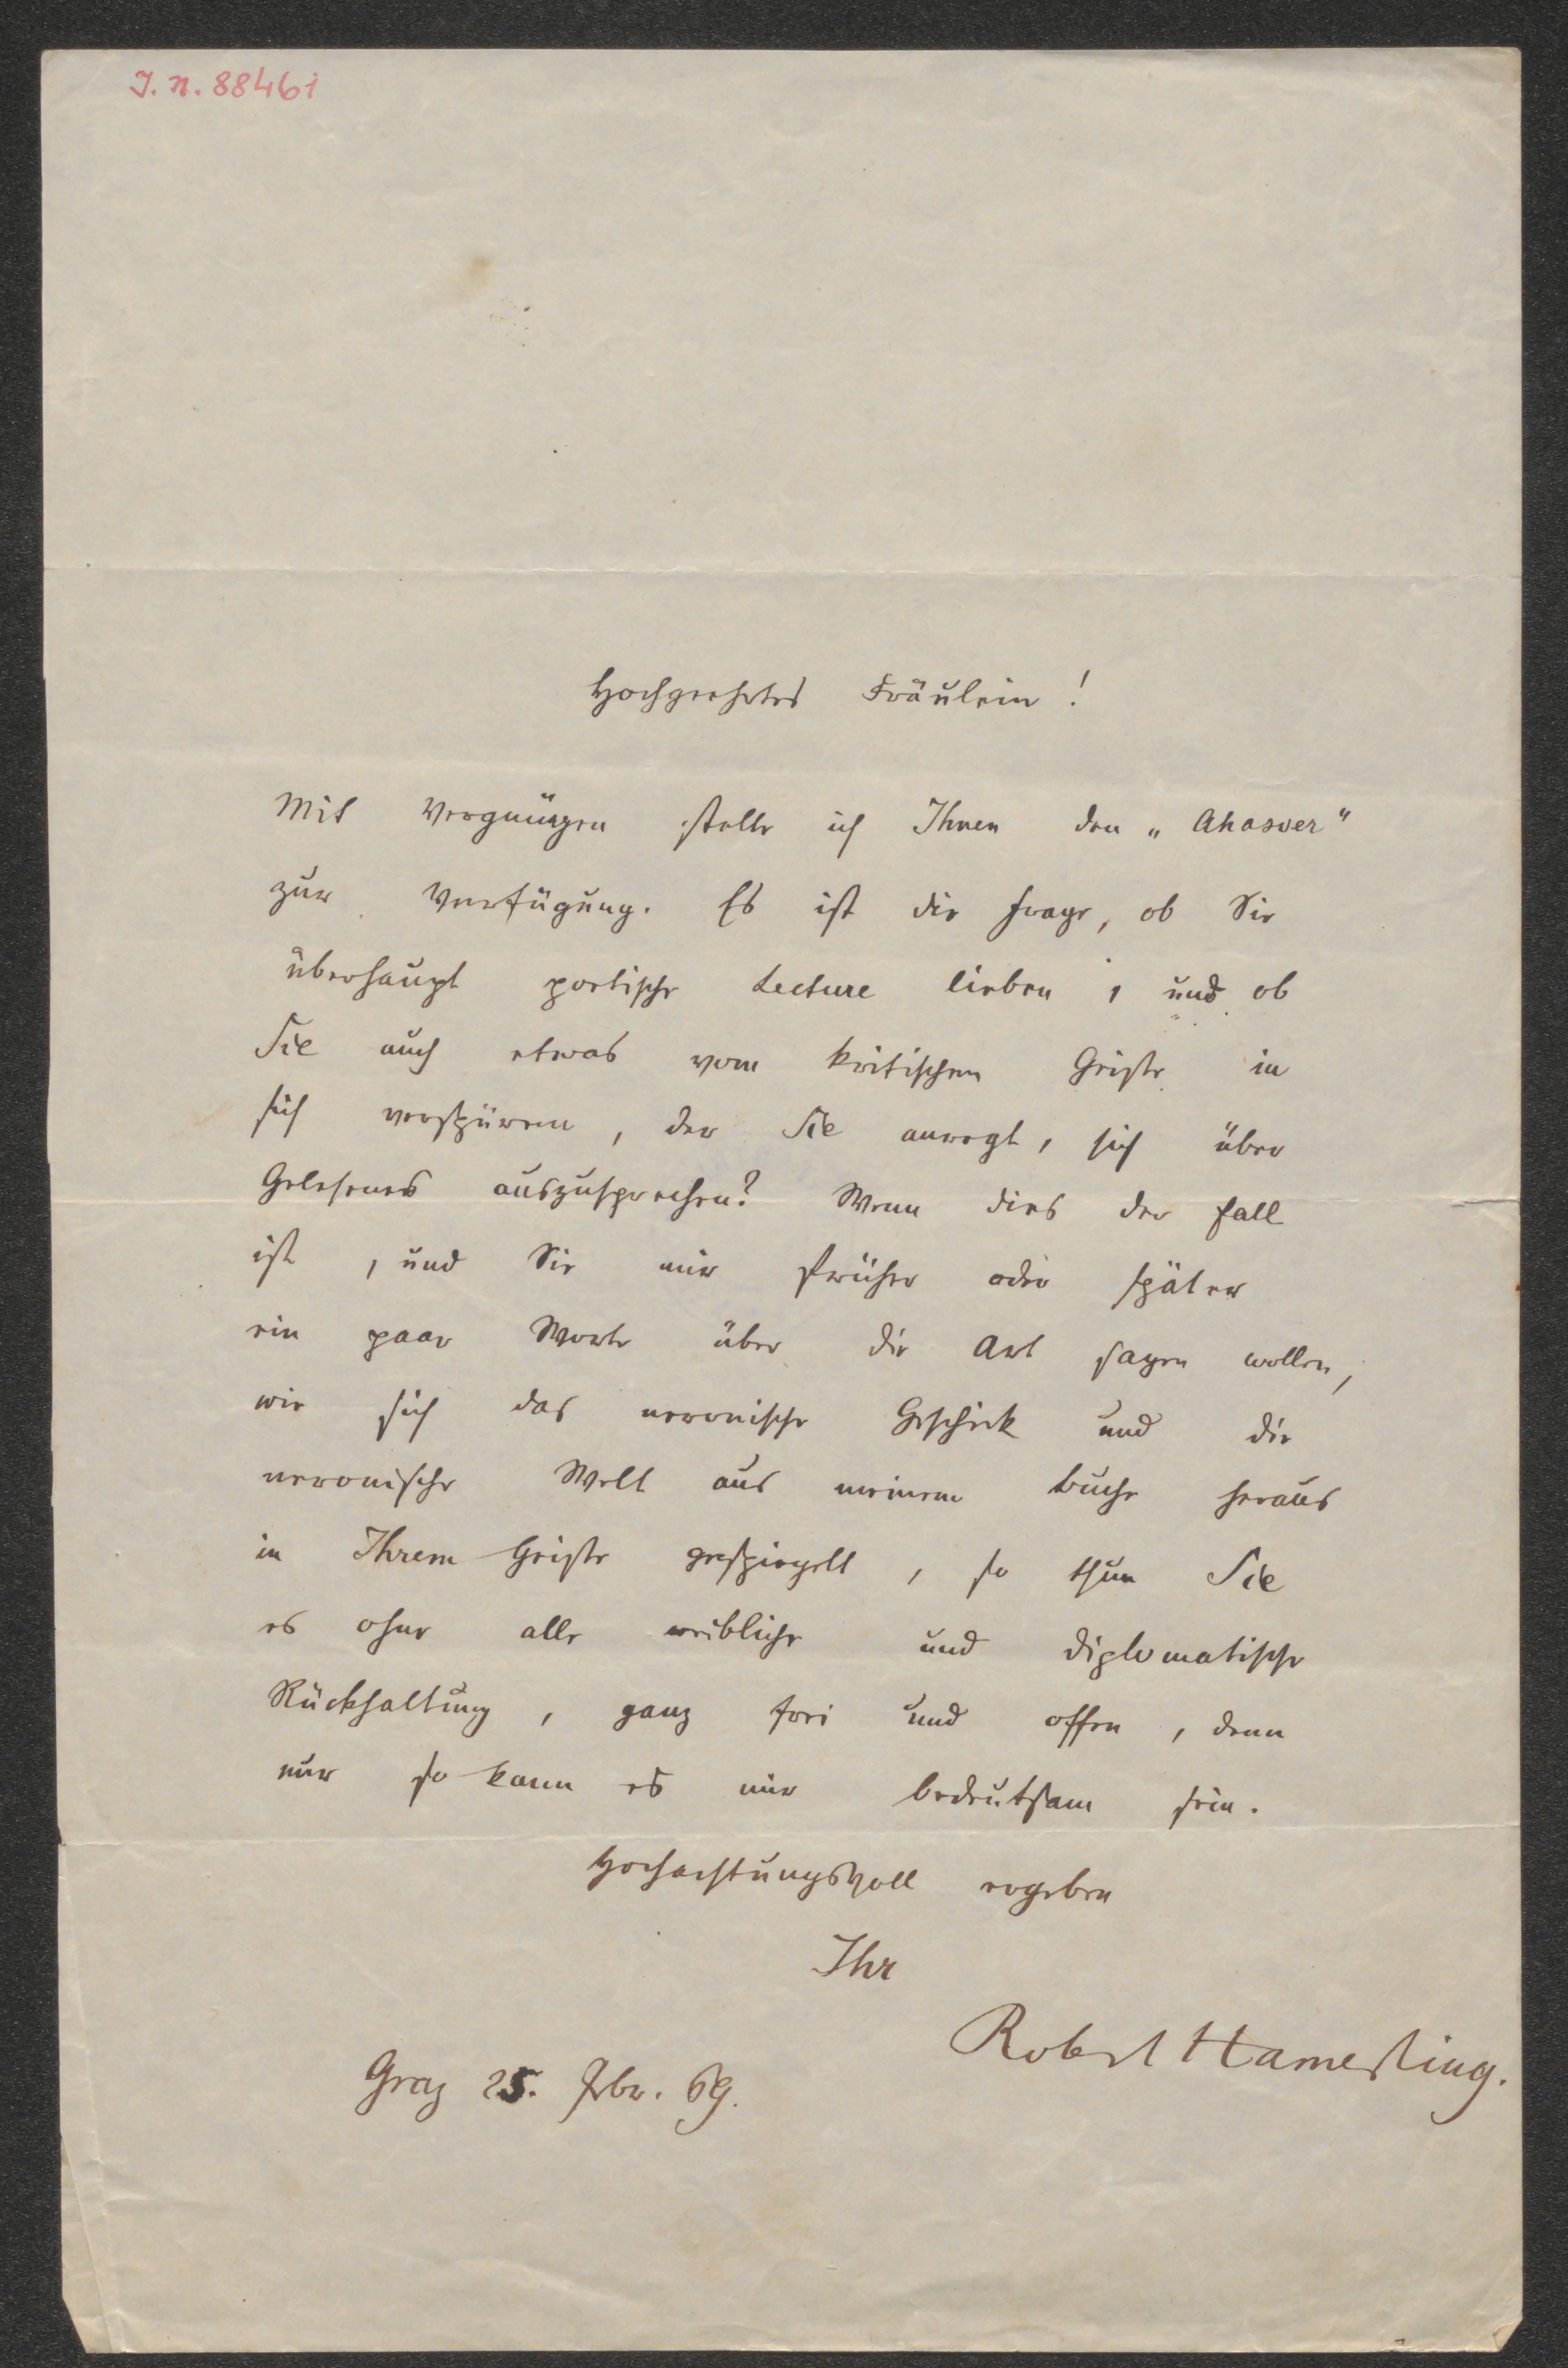 I. N. 88461
Hochgeehrtes Fräulein!
Mit Vergnügen stelle ich Ihnen den „Ahasver"
zur Verfügung. Es ist die Frage, ob Sie
überhaupt poetische Lecture lieben, und ob
Sie auch etwas vom kritischen Geiste in
sich verspüren, der Sie anregt, sich über
Gelesenes auszusprechen? Wenn dies der Fall
ist, und Sie mir früher oder später
ein paar Worte über die Art sagen wollen,
wie sich das neronische Geschick und die
neronische Welt aus meinem Buche heraus
in Ihrem Geiste gespiegelt, so thun Sie
es ohne alle weibliche und diplomatische
Rückhaltung, ganz frei und offen, denn
nur so kann es mir bedeutsam sein.
Hochachtungsvoll ergeben
Ihr
Robert Hamerling.
Graz 25. Fbr. 69.